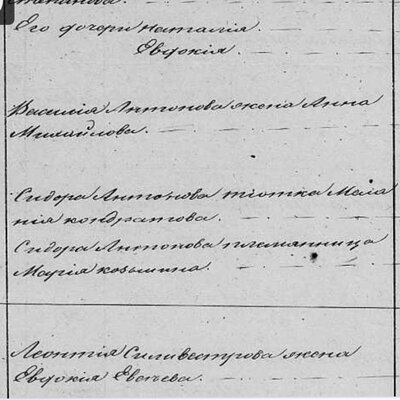 Его дочери наталия
Евдокия.
Василія Антонова жена Анна
Михайлова.
Сидора Антонова тіотка Мела
нія кондратова.
Сидора Антонова племянница
Марія козьмина.
Леонтія Силивестрова жена
Евдокія